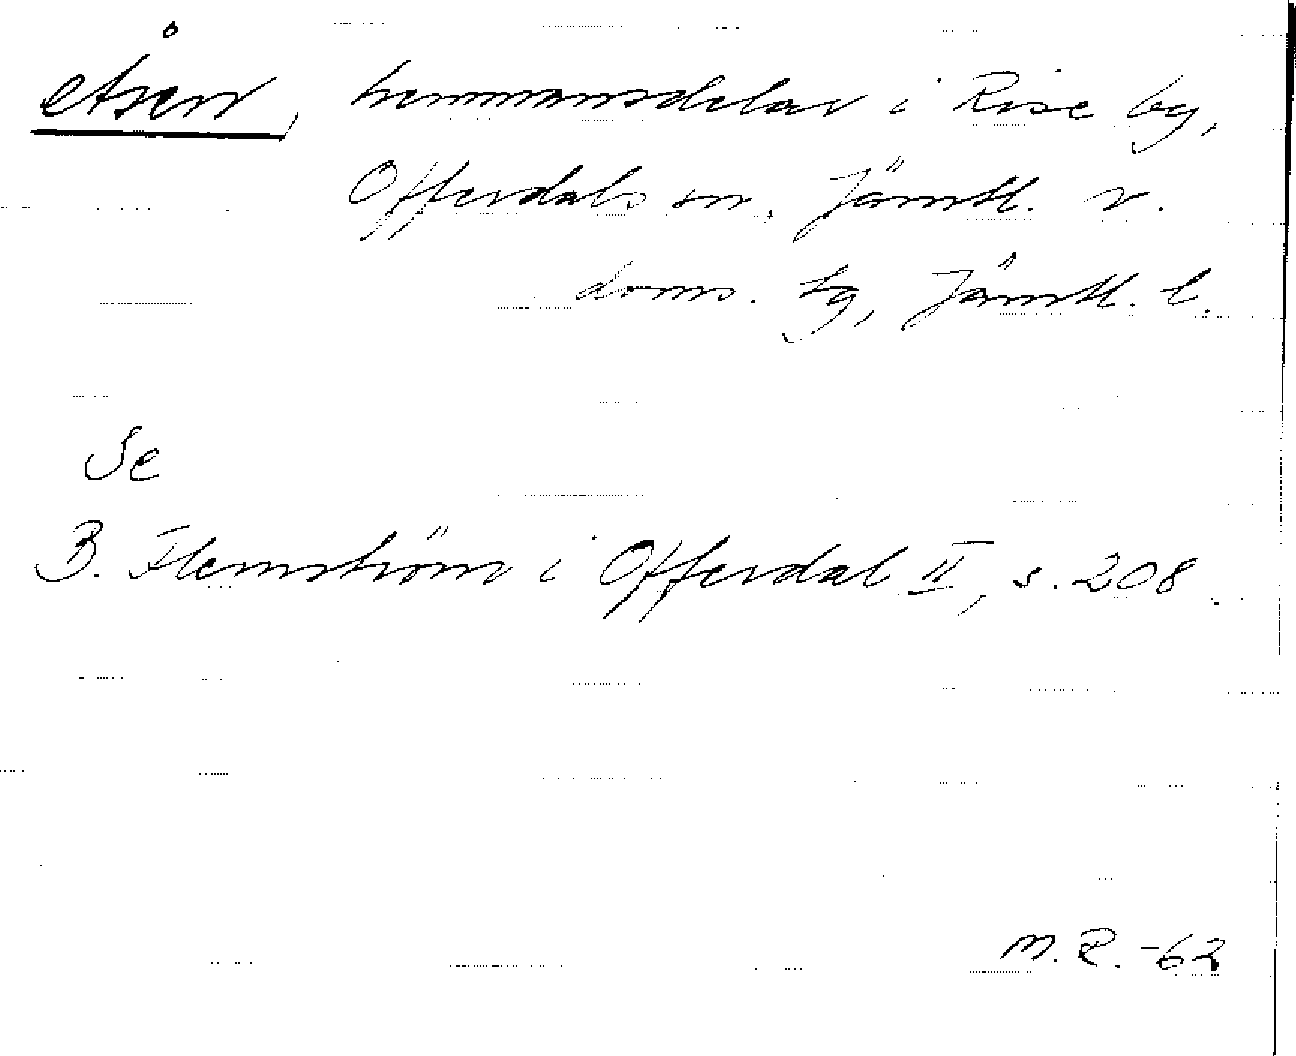 Åsen, hemmansdelar i Rise by,
Offerdals sn, Jämtl. v.
doms. tg, Jämtl. l.
Se
B. Flemström i Offerdal II, s. 208.
M. R. -62